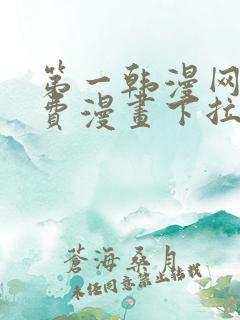 第一韩漫网
費漫畫下拉
蒼海桑月
未经同意禁止转载